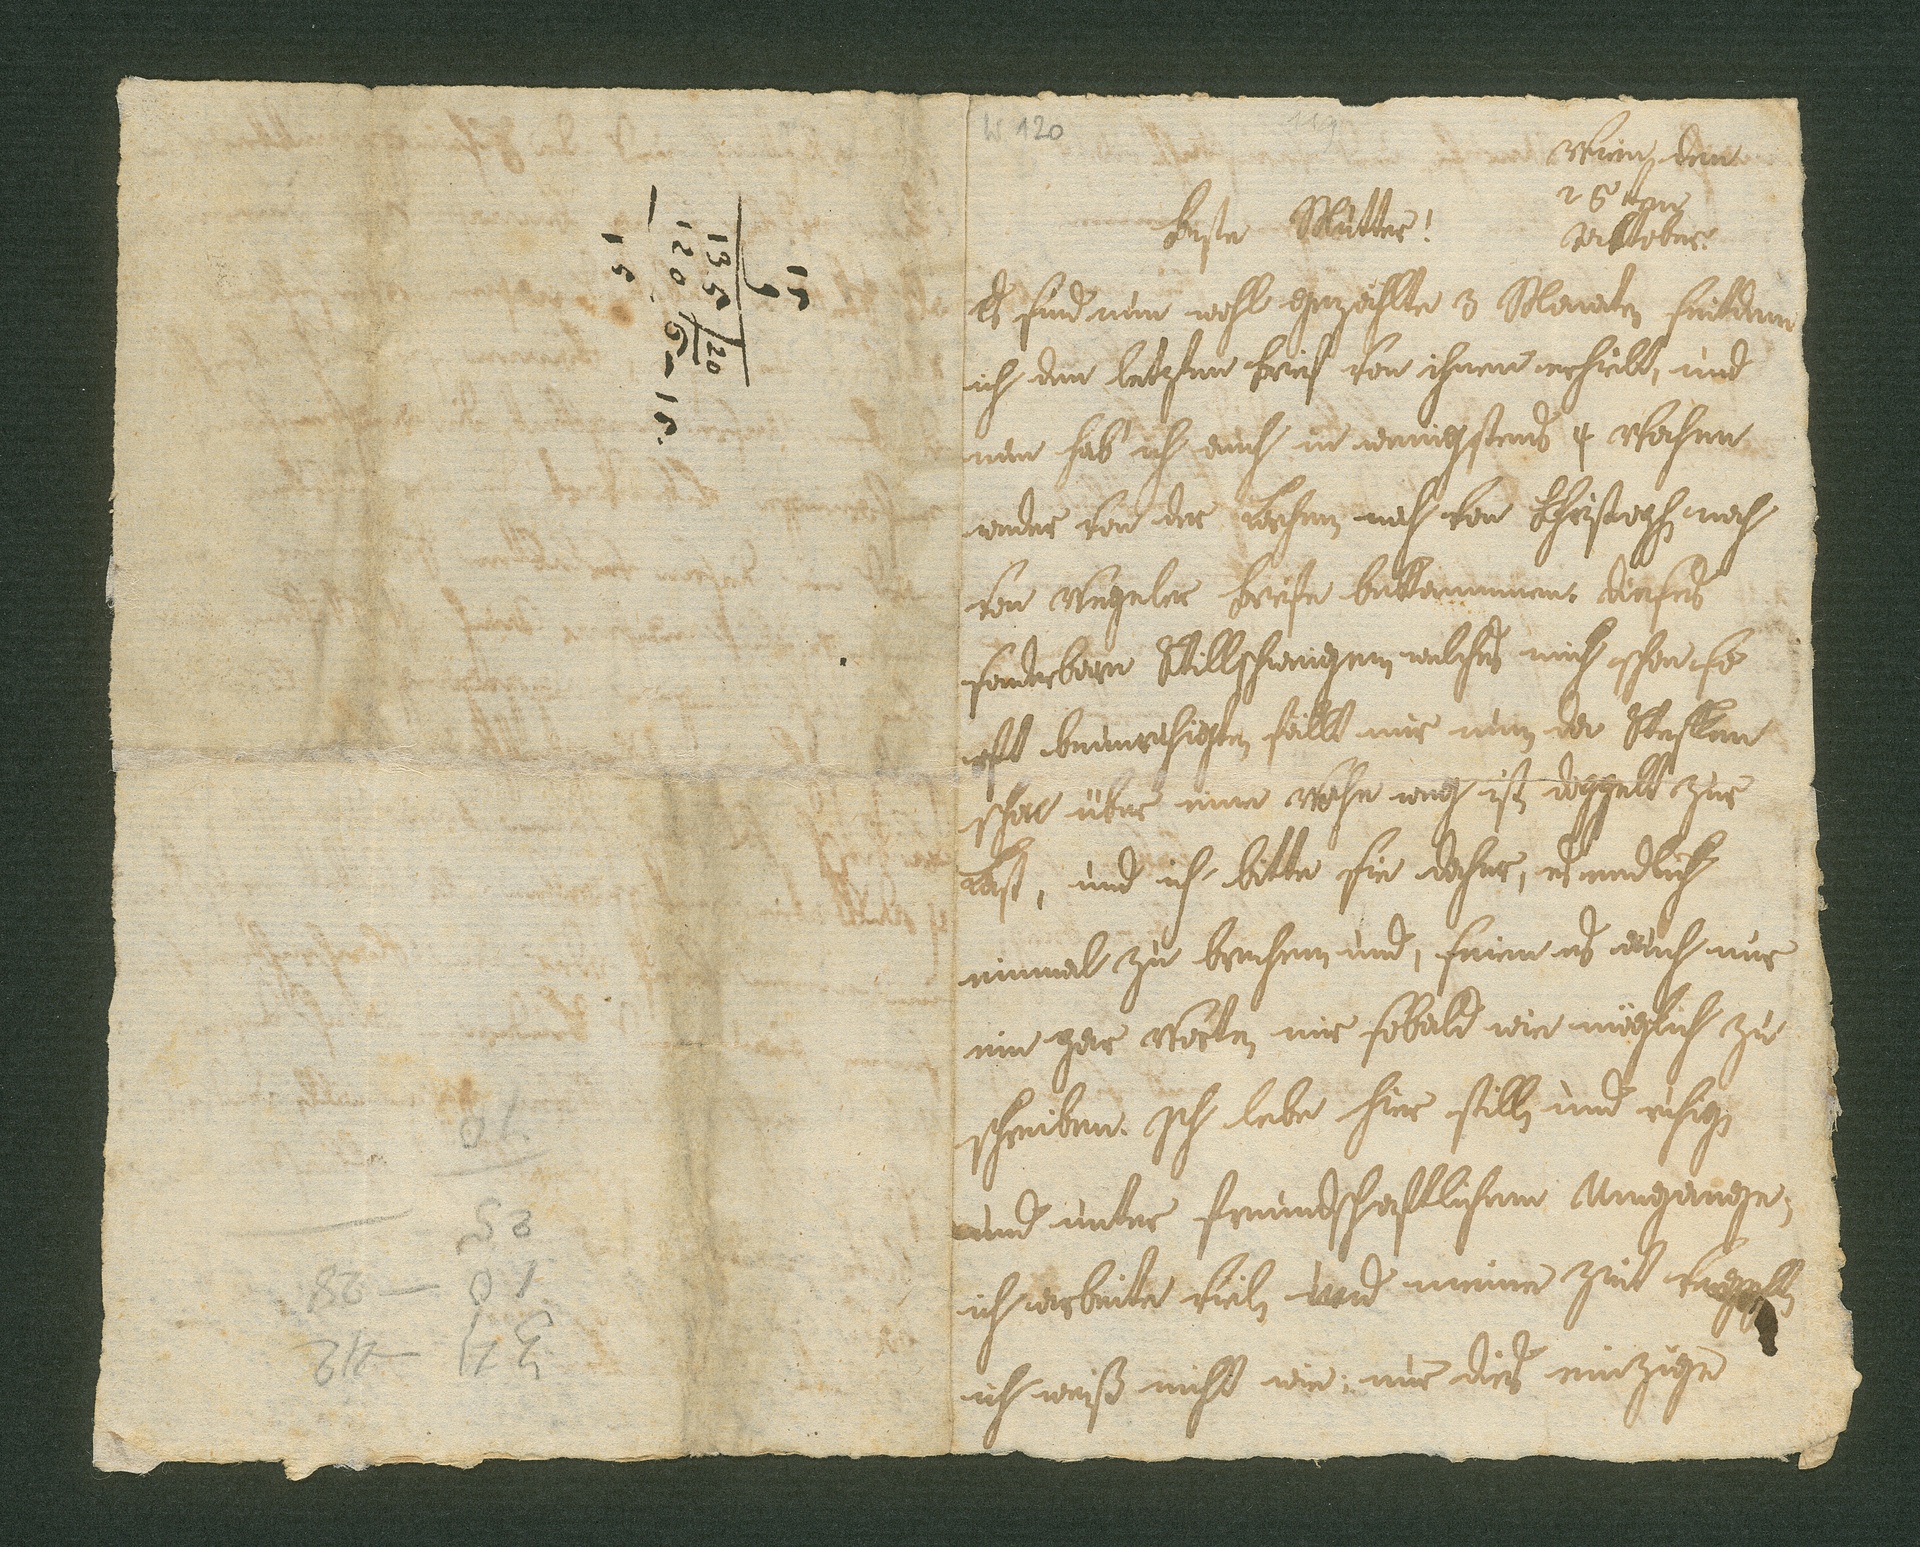 W 120
119
Wien den
26ten
Oktober.
beste Mutter!
Es sind nun wohl gezählte 3 Monate, seitdem
ich den letzten brief von ihnen erhielt, und
nun hab' ich auch in wenigstens 4 Wochen
weder von der Lorchen, noch von Christoph, noch
von Wegeler briefe bekommen. dieses
sonderbare Stillschweigen, welches mich schon so
oft beunruhigte, fällt mir nun da Steffan
schon über eine Woche weg ist, doppelt zur
Last, und ich bitte sie daher, es endlich
einmal zu brechen, und, seien es auch nur
ein paar Worte, mir sobald wie möglich zu
schreiben. Ich lebe hier still, und ruhig,
und unter freundschaftlichem Umgange,
ich arbeite viel, und meine Zeit
ich weiß nicht wie; nur dies einzige
15
6
135 20
120 6
15
15
10
25
10 — 28
34 — 42